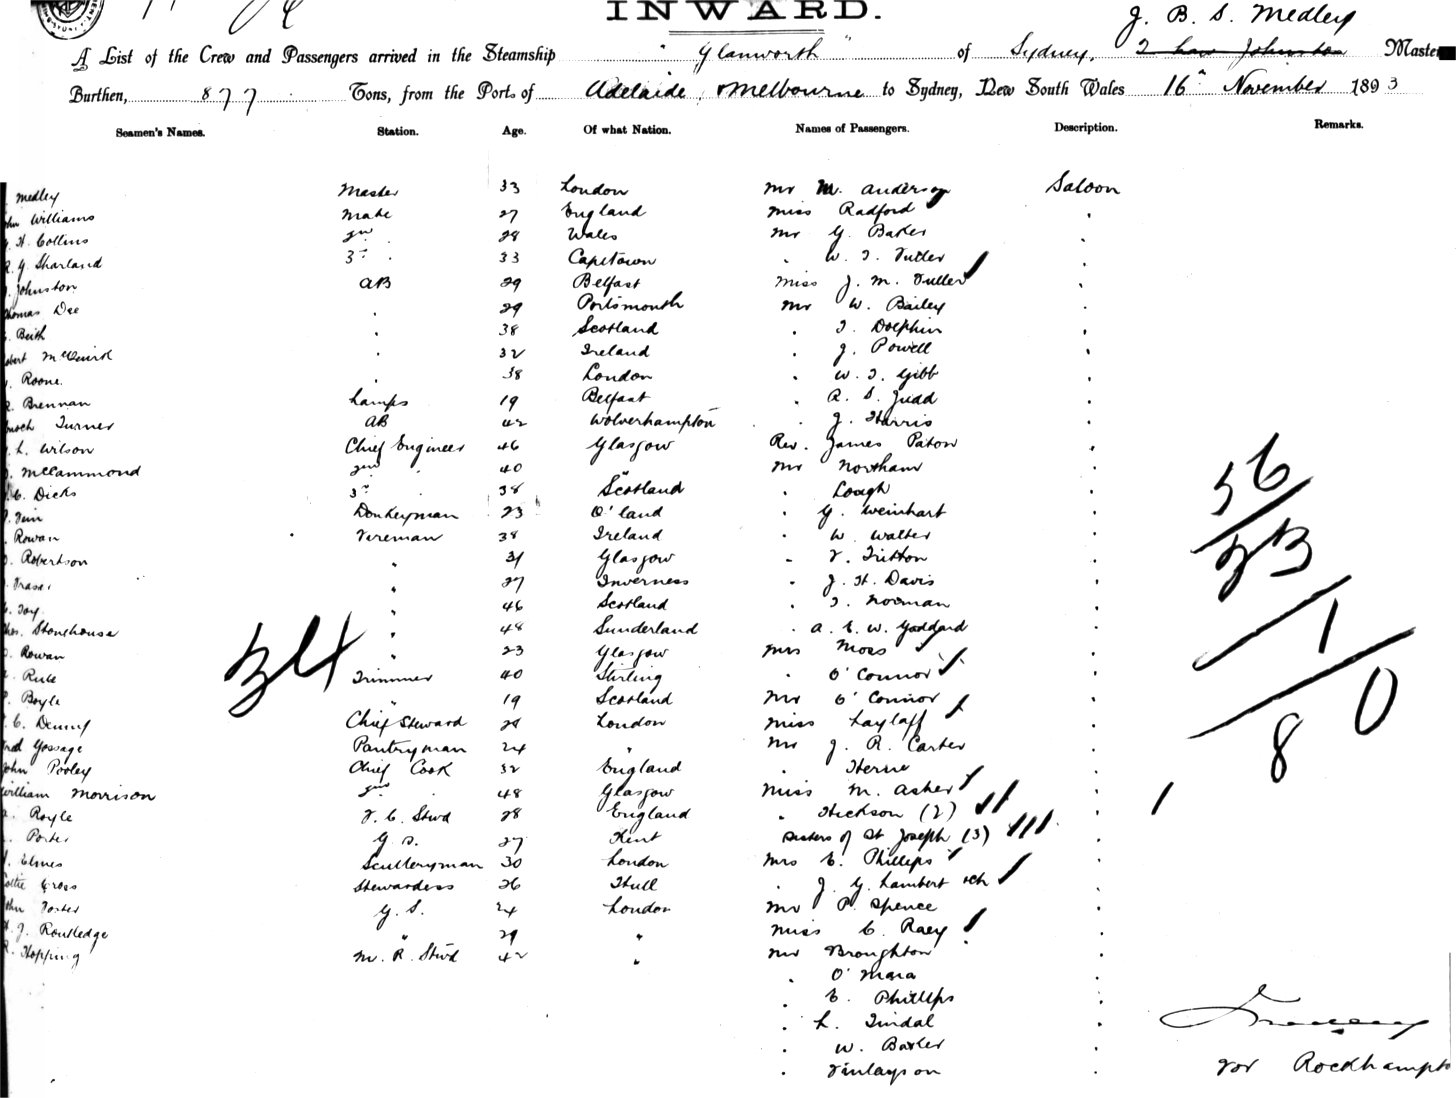 INWARD.
J. B. S. Medley
A List of the Crew and Passengers arrived in the Steamship "Glanworth" of Sydney, Johnston Master
Burthen, 877 Tons, from the Port of Adelaide, & Melbourne to Sydney, New South Wales 16th November 1893
Seamen's Names. Station. Age. Of what Nation. Names of Passengers. Description. Remarks.
Medley Master 33 London Mr M. Anderson Saloon
Williams Mate 27 England Miss Radford "
H. Collins 2nd " 28 Wales Mr G. Baker "
G. Sharland 3rd " 33 Capetown " W. T. Fuller "
Johnston AB 29 Belfast Miss J. M. Fuller "
Thomas Dee " 29 Portsmouth Mr W. Bailey "
Beith " 38 Scotland " T. Dolphin "
" 32 Ireland " J. Powell "
Roone " 38 London " W. T. Gibb "
Brennan Lamps 19 Belfast " R. S. Judd "
Enoch Turner AB 42 Wolverhampton " J. Harris "
L. Wilson Chief Engineer 46 Glasgow Rev. James Paton "
McCammond 2nd " 40 " Mr Northam "
C. Dicks 3rd " 38 Scotland " Lough "
Donkeyman 23 O'land " G. Weinhart "
Rowan Fireman 38 Ireland " W. Walter "
Robertson " 31 Glasgow " F. Tritton "
" 27 Inverness " J. H. Davis "
" 46 Scotland " T. Norman "
Thos. Stonehouse " 48 Sunderland " A. E. W. Goddard "
Rowan " 23 Glasgow Mrs Moss "
Rule Trimmer 40 Stirling " O'Connor "
Boyle " 19 Scotland Mr O'Connor "
C. Denny Chief Steward 28 London Miss "
Fred Gossage Pantryman 24 " Mr J. R. Carter "
John Pooley Chief Cook 32 England " Herne "
William Morrison 2nd " 48 Glasgow Miss M. Asher "
Royle F. C. Stwd 28 England " Hickson (2) " 1
Porter G. S. 27 Kent Sisters of St Joseph (3) "
Elmes Sculleryman 30 London Mrs E. Phillips "
Lottie Cross Stewardess 26 Hull " J. G. Lambert "
John Foster G. S. 24 London Mr P. Spence "
J. Routledge " 29 " Miss C. Raey "
Hopping M. R. Stwd 42 " Mr Broughton "
" O'Mara "
" E. Phillips "
" L. Tindal "
" W. Baxter "
" Finlayson "
34
56
33
1
0
8
for Rockhampto